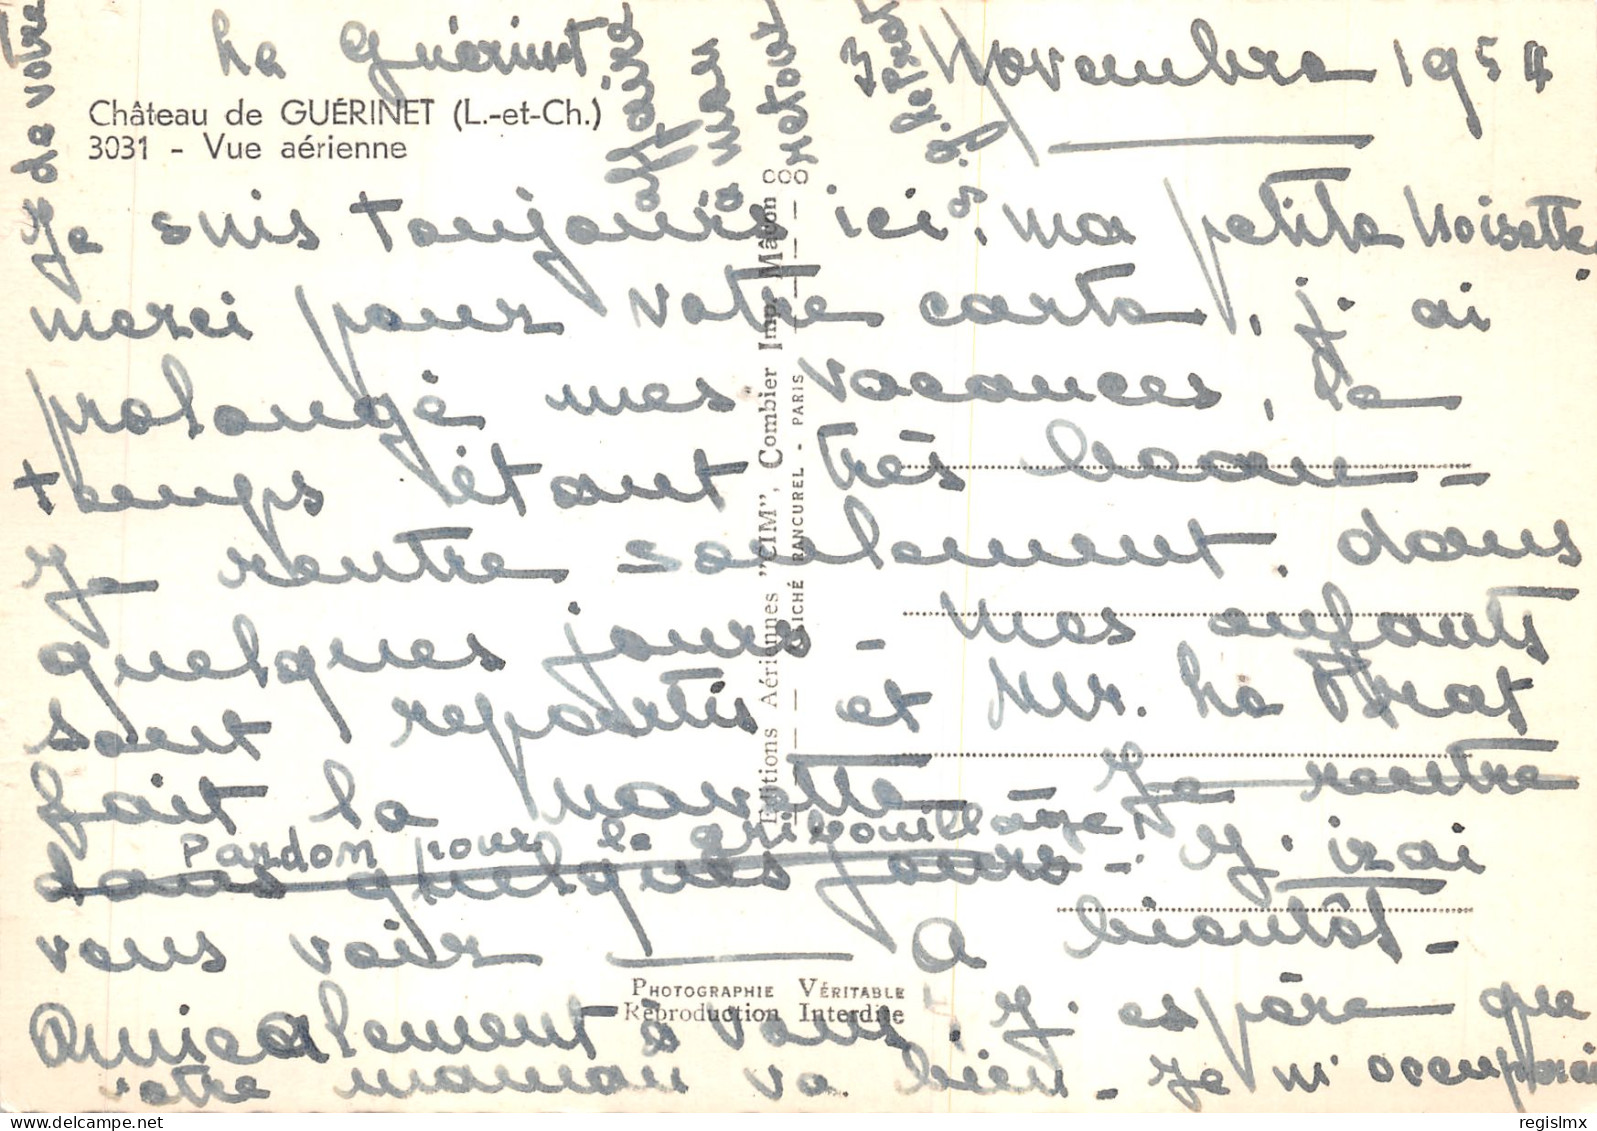 Le Guérinet
3 Novembre 1954
Château de GUÉRINET (L.-et-Ch.)
3031 - Vue aérienne
Je suis toujours ici, ma petite Noisette,
merci pour votre carte, j'ai
prolongé mes vacances, le
temps étant très beau -
Je rentre seulement dans
quelques jours - Mes enfants
sont repartis et Mr. Le Prat
fait la navette - Je rentre
Pardon pour le gribouillage!
dans quelques jours - J'irai
vous voir A bientôt -
Amicalement à vous, J'espère que
votre maman va bien - Je m'occuperai
de votre
affaire
à mon
retour
J. Le Prat
Editions Aériennes "CIM", Combier Imp. Mâcon
CLICHÉ RANCUREL - PARIS
PHOTOGRAPHIE VÉRITABLE
Reproduction Interdite
regislmx